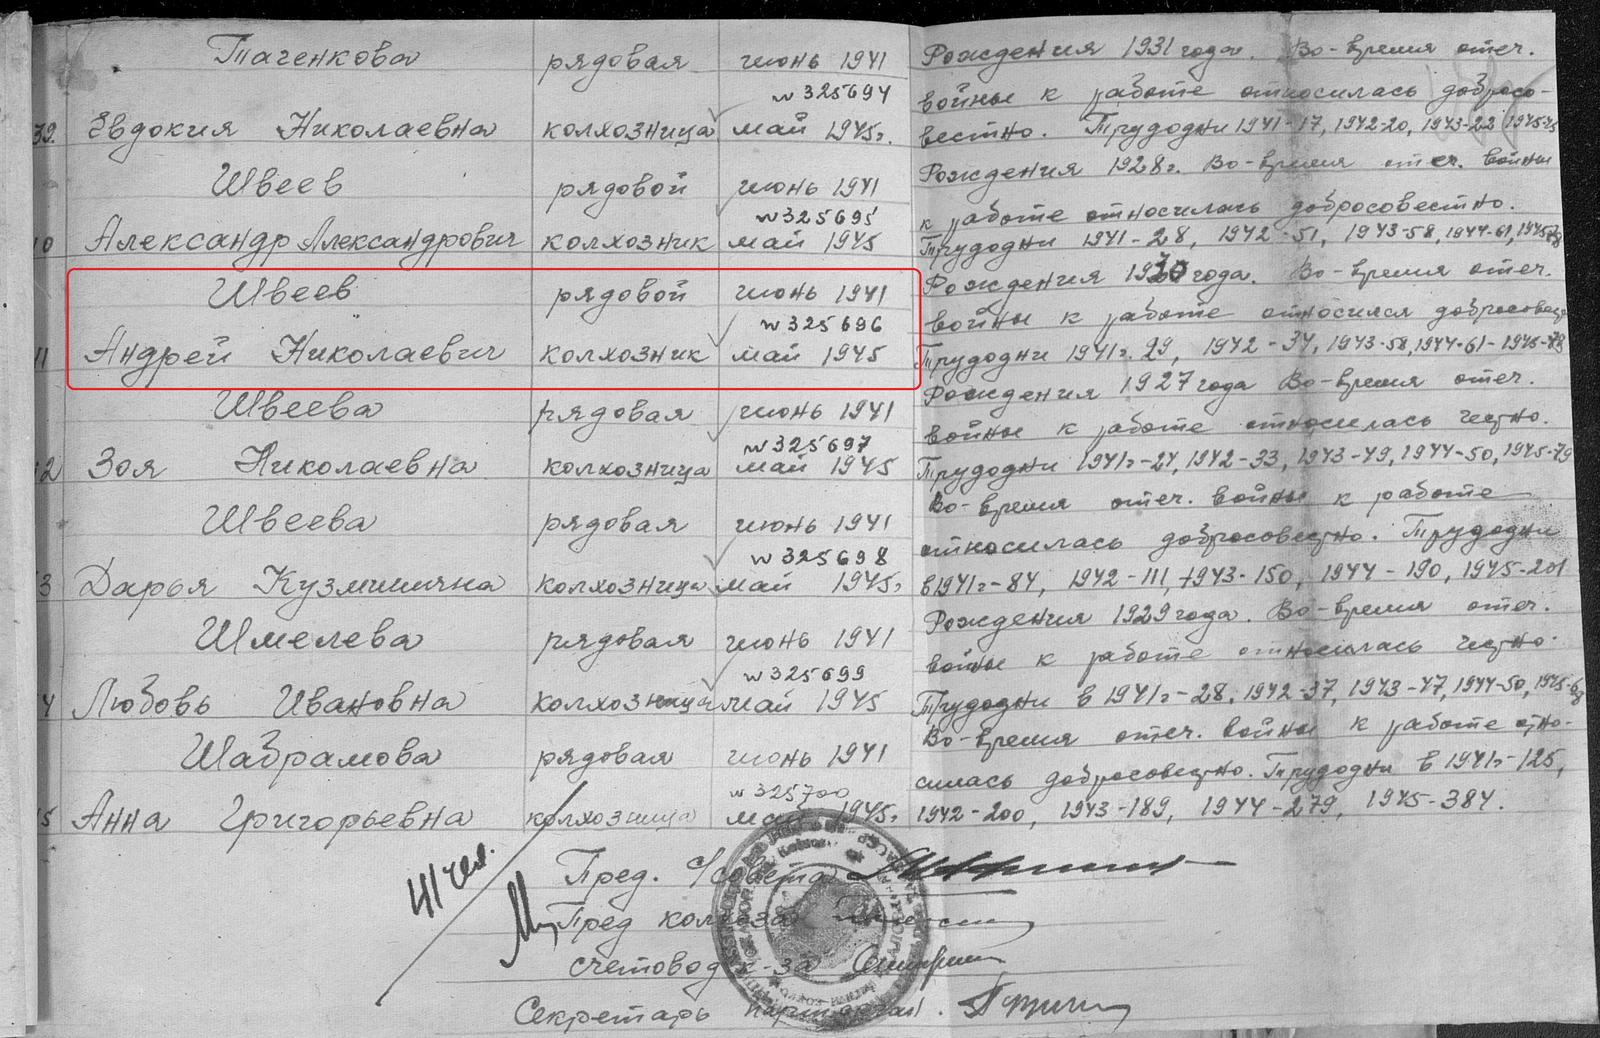 Таченкова рядовая июнь 1941 Рождения 1931 года. Во-время отеч.
№ 325694 войны к работе относилась добросо-
39. Евдокия Николаевна колхозница май 1945г. вестно. Трудодни 1941-17, 1942-20, 1943-22 1945-45
Швеев рядовой июнь 1941 Рождения 1928г. Во-время отеч. войны
№ 325695 к работе относилась добросовестно.
0 Александр Александрович колхозник май 1945 Трудодни 1941-28, 1942-51, 1943-58, 1944-61, 1945-78
Швеев рядовой июнь 1941 Рождения 1930 года. Во-время отеч.
№ 325696 войны к работе относился добросовест
11 Андрей Николаевич колхозник май 1945 Трудодни 1941г. 29, 1942-34, 1943-58, 1944-61-1945-
Швеева рядовая июнь 1941 Рождения 1927 года Во-время отеч.
№ 325697 войны к работе относилась честно.
12 Зоя Николаевна колхозница май 1945 Трудодни 1941г-24, 1942-33, 1943-49, 1944-50, 1945-79
Швеева рядовая июнь 1941 Во-время отеч. войны к работе
№ 325698 относилась добросовестно. Трудодни
3 Дарья Кузминична колхозница май 1945г. в 1941г-84, 1942-111, 1943-150, 1944-190, 1945-201
Шмелева рядовая июнь 1941 Рождения 1929 года. Во-время отеч.
№ 325699 войны к работе относилась честно.
4 Любовь Ивановна колхозница май 1945 Трудодни в 1941г-28, 1942-37, 1943-47, 1944-50, 1945-
Шабрамова рядовая июнь 1941 Во-время отеч. войны к работе отно-
№ 325700 силась добросовестно. Трудодни в 1941г-125,
5 Анна Григорьевна колхозница май 1945г. 1942-200, 1943-189, 1944-279, 1945-384.
41 чел.
Пред. С/совета
Пред колхоза
счетовод к-за
Секретарь парторган.